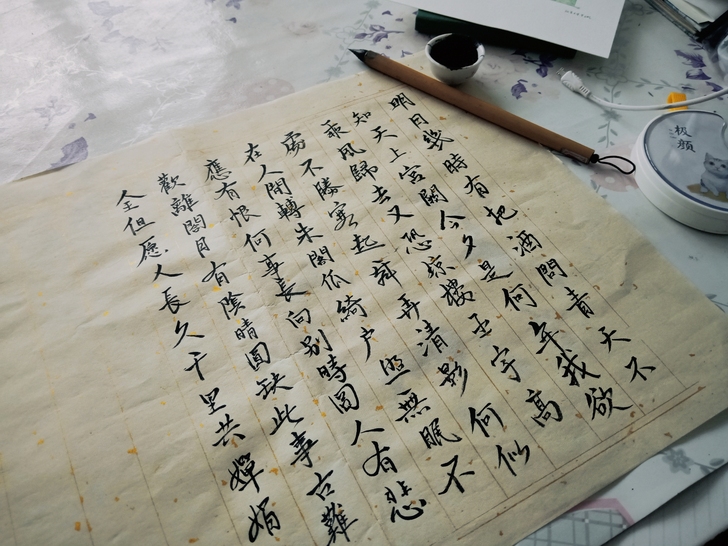 明月幾時有把酒問青天不
知天上宮闕今夕是何年我欲
乘風歸去又恐琼樓玉宇高
處不勝寒起舞弄清影何似
在人間轉朱閣低綺户照無眠不
應有恨何事長向别時圓人有悲
歡離閤月有陰晴圓缺此事古難
全但愿人長久千里共嬋娟
极顔